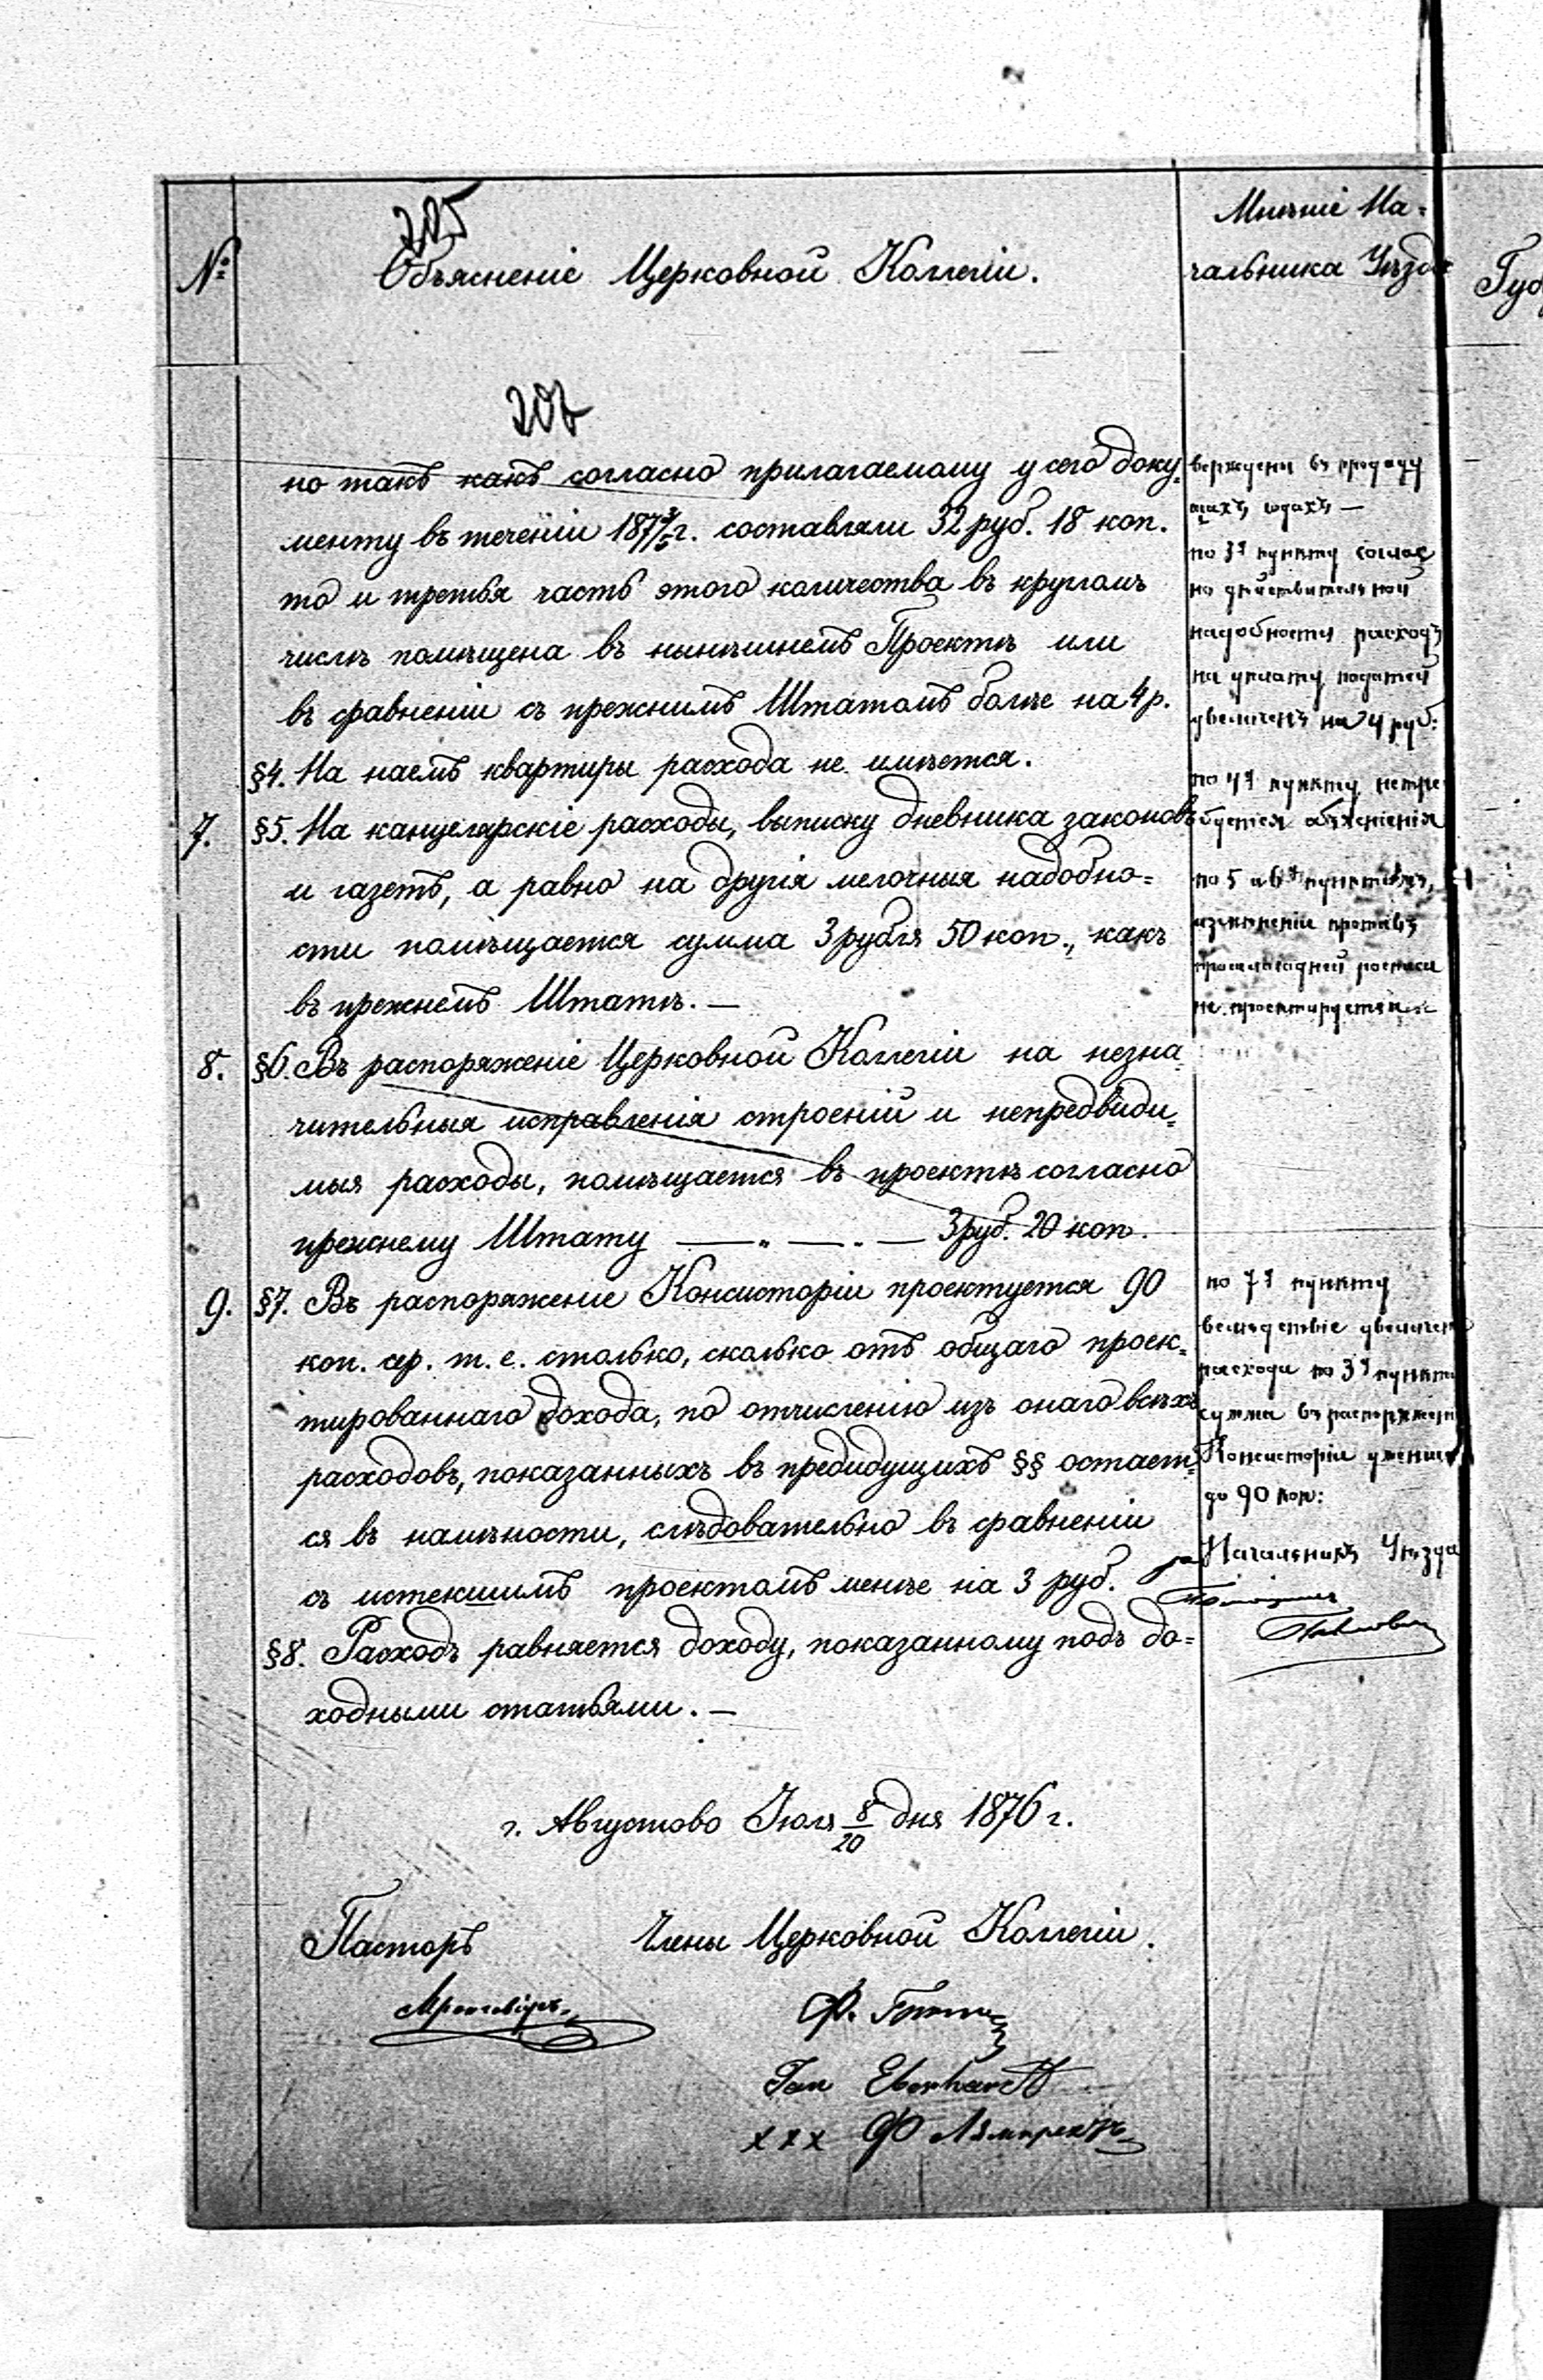 225
№
Объясненіе Церковной Коллегіи.
Мнѣніе На-
чальника Уѣзда
Губ
но такъ какъ согласно прилагаемому у сего доку-
менту въ теченіи 187 3/5 г. составляли 32 руб. 18 коп.
то и третья часть этого количества въ кругломъ
числѣ помѣщена въ нынѣшнемъ Проектѣ или
въ сравненіи съ прежнимъ Штатомъ болѣе на 4 р.
§4. На наемъ квартиры расхода не имѣется.
7. §5. На канцелярскіе расходы, выписку дневника законовъ
и газетъ, а равно на другія мелочныя надобно-
сти помѣщается сумма 3 рубля 50 коп., какъ
въ прежнемъ Штатѣ. —
8. §6. Въ распоряженіе Церковной Коллегіи на незна-
чительныя исправленія строеній и непредвиди-
мыя расходы, помѣщается въ проектѣ согласно
прежнему Штату — „ — . — 3 руб. 20 коп.
9. §7. Въ распоряженіе Консисторіи проектуется 90
коп. сер. т. е. столько, сколько отъ общаго проек-
тированнаго дохода, по отчисленію изъ онаго всѣхъ
расходовъ, показанныхъ въ предидущихъ §§ остает-
ся въ наличности, слѣдовательно въ сравненіи
съ истекшимъ проектомъ менѣе на 3 руб.
§8. Расходъ равняется доходу, показанному подъ до-
ходными статьями. —
г. Августово Іюля 8/20 дня 1876 г.
Пасторъ
Члены Церковной Коллегіи.
Ф.
Jan Eberhardt
x x x Ф
вержденн въ предыду
щихъ годахъ —
по 3й пункту соглас
но дѣйствительной
надобности расходъ
на уплату податей
увеличенъ на 4 руб:
по 4й пункту нетре
буется объясненія
по 5 и 6й пунктамъ,
измѣненіи противъ
прошлогодней росписи
не проектируется
по 7й пункту
вслѣдствіе увеличен
расхода по 3й пункт
сумма въ распоряжен
Консисторіи уменш
до 90 коп:
за Начальникъ Уѣзда